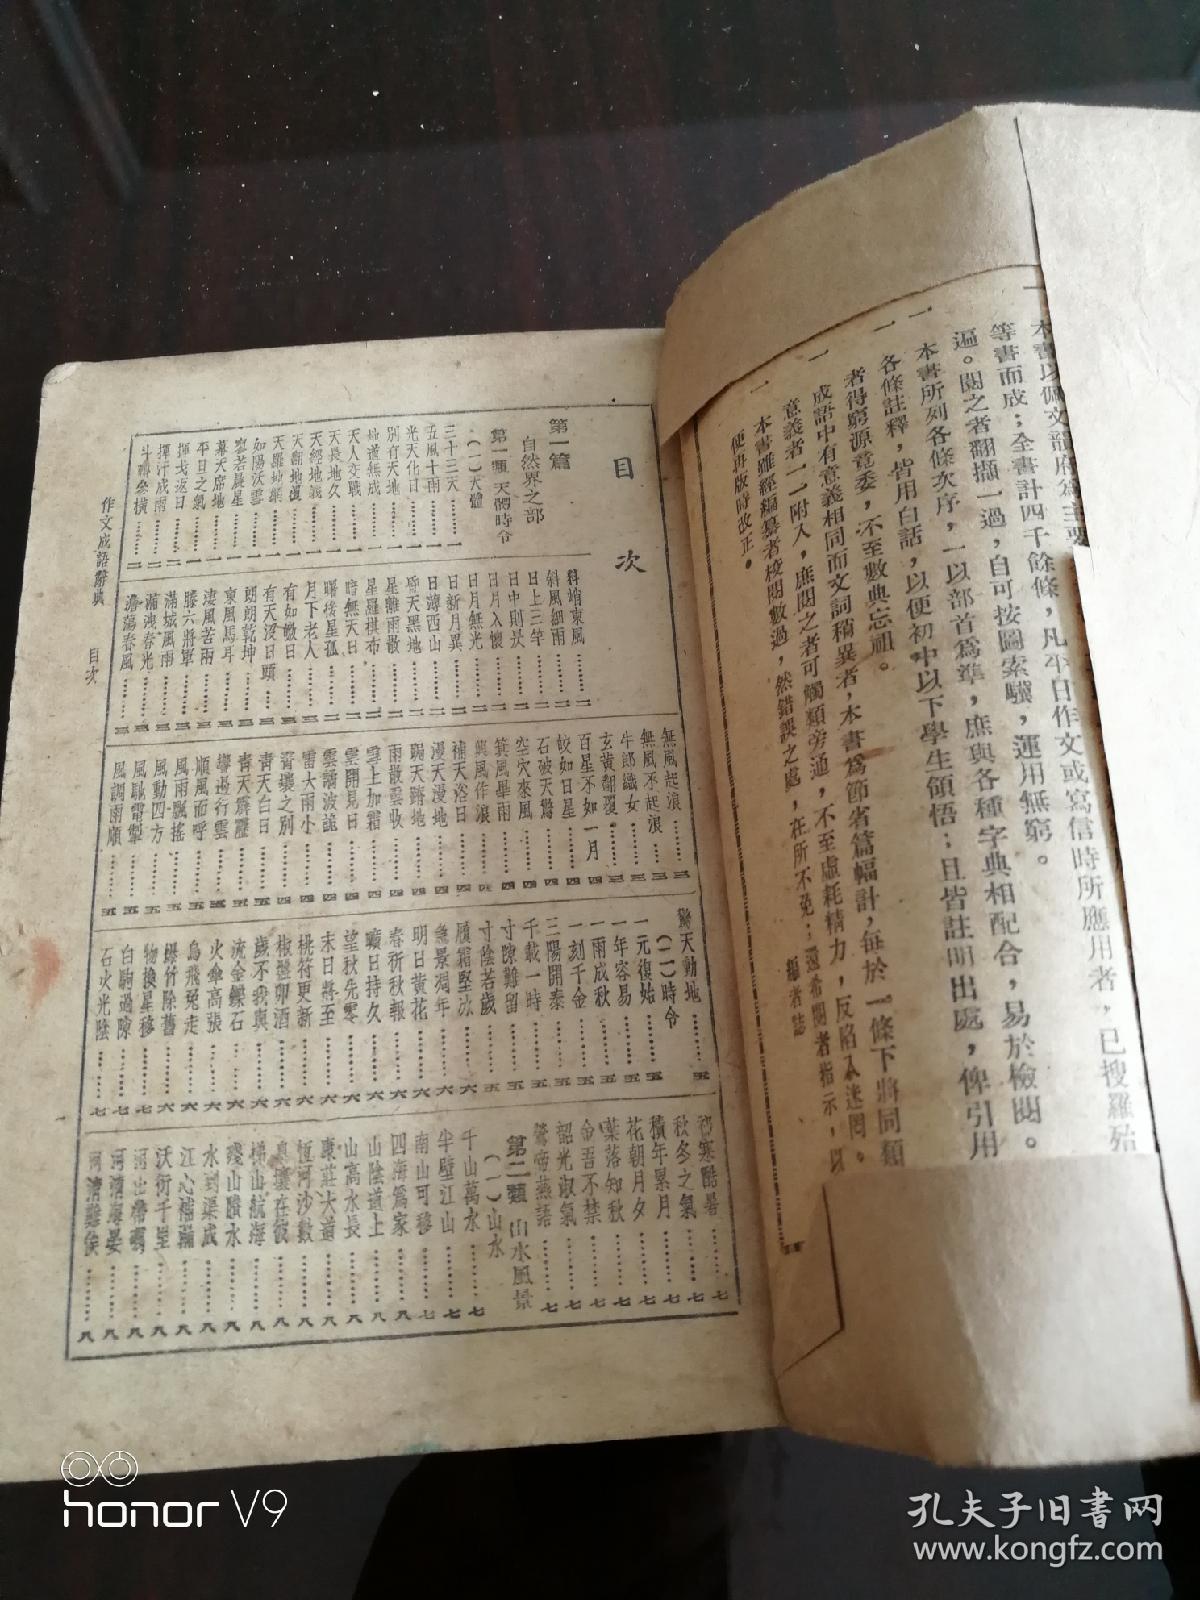 一 本書以佩文韻府爲主要
等書而成；全書計四千餘條，凡平日作文或寫信時所應用者，已搜羅殆
遍。閱之者翻擷一過，自可按圖索驥，運用無窮。
一 本書所列各條次序，一以部首爲準，庶與各種字典相配合，易於檢閱。
一 各條註釋，皆用白話，以便初中以下學生領悟；且皆註明出處，俾引用
者得窮源竟委，不至數典忘祖。
一 成語中有意義相同而文詞稍異者，本書爲節省篇幅計，每於一條下將同類
意義者一一附入，庶閱之者可觸類旁通，不至虛耗精力，反陷入迷罔。
一 本書雖經編纂者校閱數過，然錯誤之處，在所不免；還希閱者指示，以
便再版時改正。
編者誌
目次
第一篇 自然界之部
第一類 天體時令
（一）天體
三十三天………一
五風十雨………一
光天化日………一
別有天地………一
地道無成………一
天人交戰………一
天長地久………一
天經地義………一
天翻地覆………一
天羅地網………一
如湯沃雪………一
寥若晨星………一
幕天席地………一
平旦之氣………一
揮戈返日………一
揮汗成雨………一
斗轉參橫………一
斜風細雨………二
日上三竿………二
日中則昃………二
日月入懷………二
日月無光………二
日新月異………二
日薄西山………二
昏天黑地………二
星離雨散………二
星羅棋布………二
暗無天日………二
月下老人………二
有如皦日………二
有天沒日頭………二
朗朗乾坤………三
東風馬耳………三
淒風苦雨………三
滕六將軍………三
滿城風雨………三
滿洩春光………三
澹蕩春風………三
無風起浪………三
無風不起浪………三
牛郎織女………三
玄黃翻覆………三
百星不如一月………四
皎如日星………四
石破天驚………四
空穴來風………四
箕風畢雨………四
興風作浪………四
補天浴日………四
漫天漫地………四
跼天蹐地………四
雨散雲收………四
雪上加霜………四
雲開見日………四
雲譎波詭………四
雷大雨小………四
霄壤之別………四
青天白日………五
青天霹靂………五
響遏行雲………五
順風而呼………五
風雨飄搖………五
風動四方………五
風馳電掣………五
風調雨順………五
驚天動地………五
（二）時令
一元復始………五
一年容易………五
一雨成秋………五
一刻千金………五
三陽開泰………五
千載一時………五
寸隙難留………五
寸陰若歲………五
履霜堅冰………六
急景凋年………六
明日黃花………六
春祈秋報………六
曠日持久………六
望秋先零………六
末日將至………六
桃符更新………六
椒盤卯酒………六
歲不我與………六
流金鑠石………六
火傘高張………六
烏飛兔走………六
爆竹除舊………六
物換星移………七
白駒過隙………七
石火光陰………七
祁寒酷暑………七
秋冬之氣………七
積年累月………七
花朝月夕………七
葉落知秋………七
金吾不禁………七
韶光淑氣………七
鶯啼燕語………七
第二類 山水風景
（一）山水
千山萬水………七
半壁江山………七
南山可移………七
四海爲家………八
山陰道上………八
山高水長………八
康莊大道………八
恆河沙數………八
息壤在彼………八
梯山航海………八
殘山賸水………八
水到渠成………八
江心補漏………八
沃衍千里………八
河山帶礪………八
河清海晏………八
河清難俟………八
作文成語辭典 目次
honor V9
孔夫子旧书网
www.kongfz.com